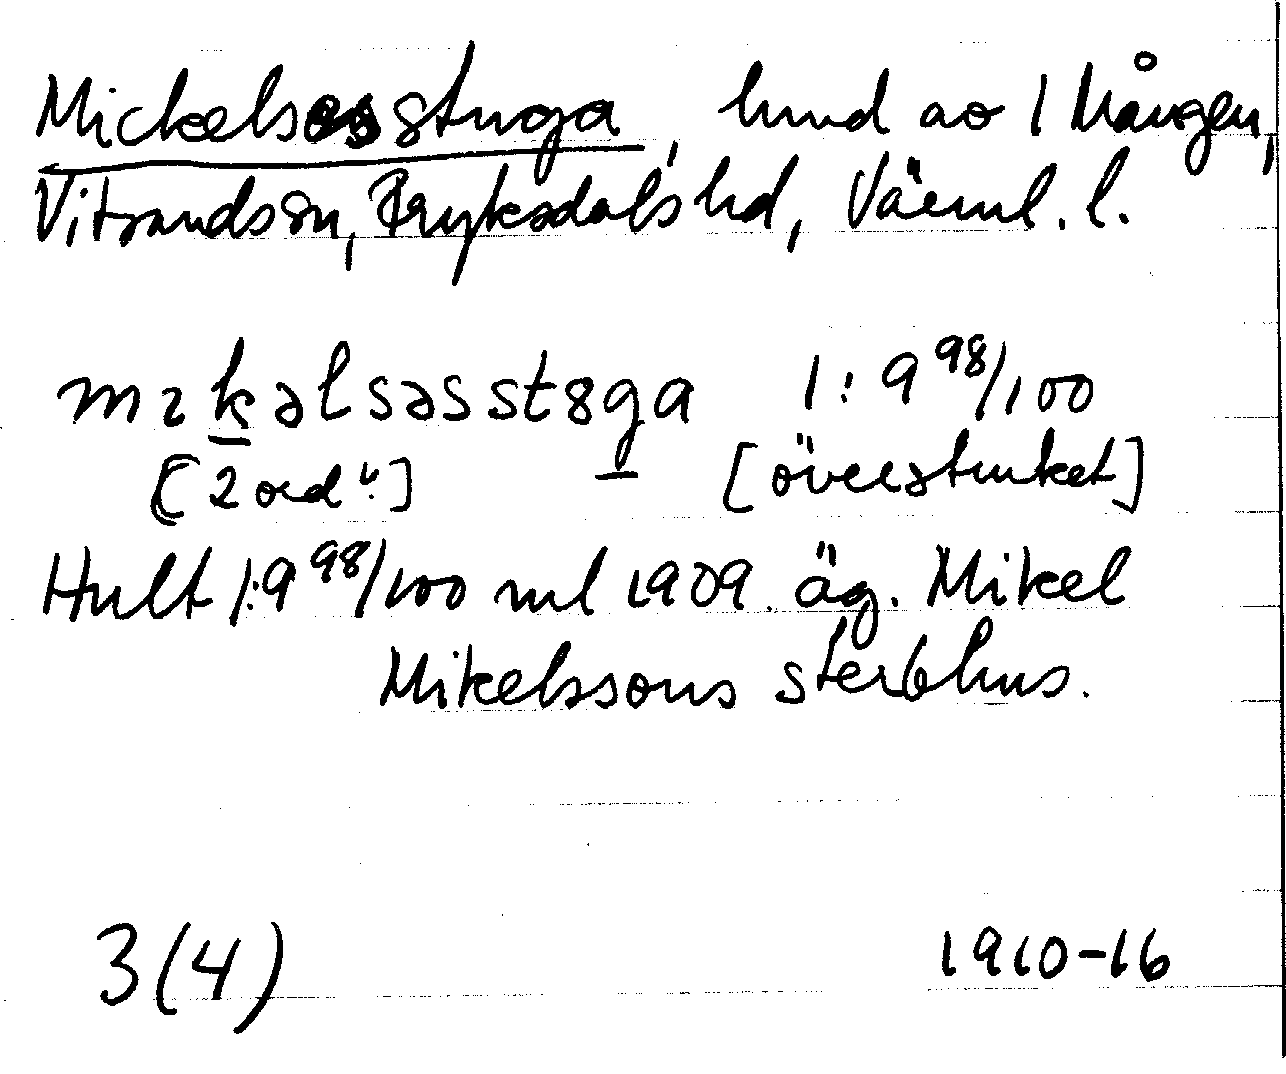 Mickelsesstuga, lund av 1 Mången,
Vitsandssn, Fryksdals hd, Värml. l.
mɪkəlsəsstɞga 1:9 98/100
[2 ord?] [överstruket]
Hult 1:9 98/100 mtl 1909. äg. Mikel
Mikelssons sterbhus.
3(4) 1910-16